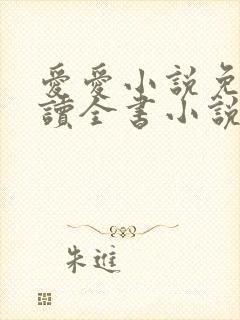 愛愛小說免
讀全書小說
朱進